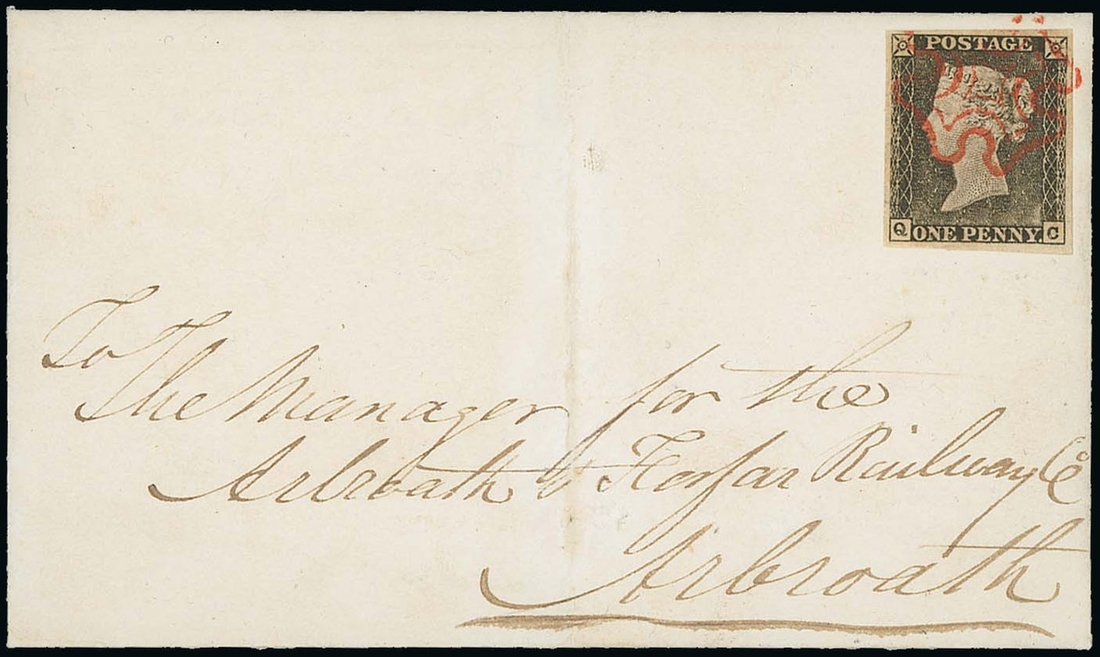 POSTAGE
ONE PENNY.
Q G
To
The Manager for the
Arbroath & Forfar Railway Co
Arbroath